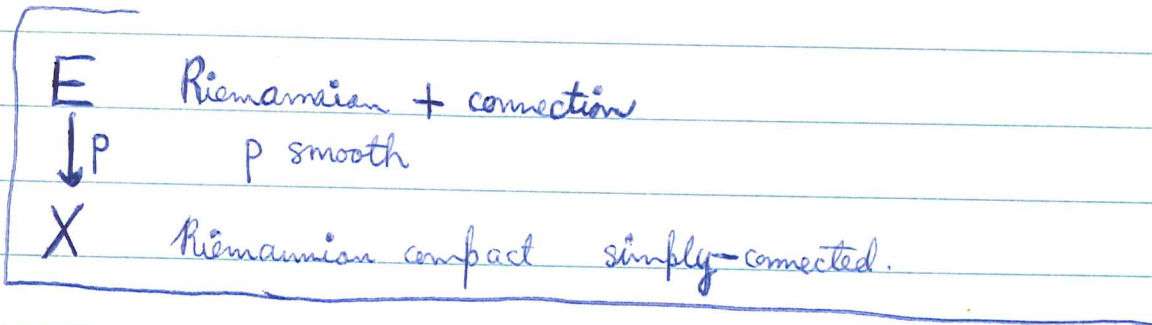 E Riemannian + connection
↓ p p smooth
X Riemannian compact simply-connected.